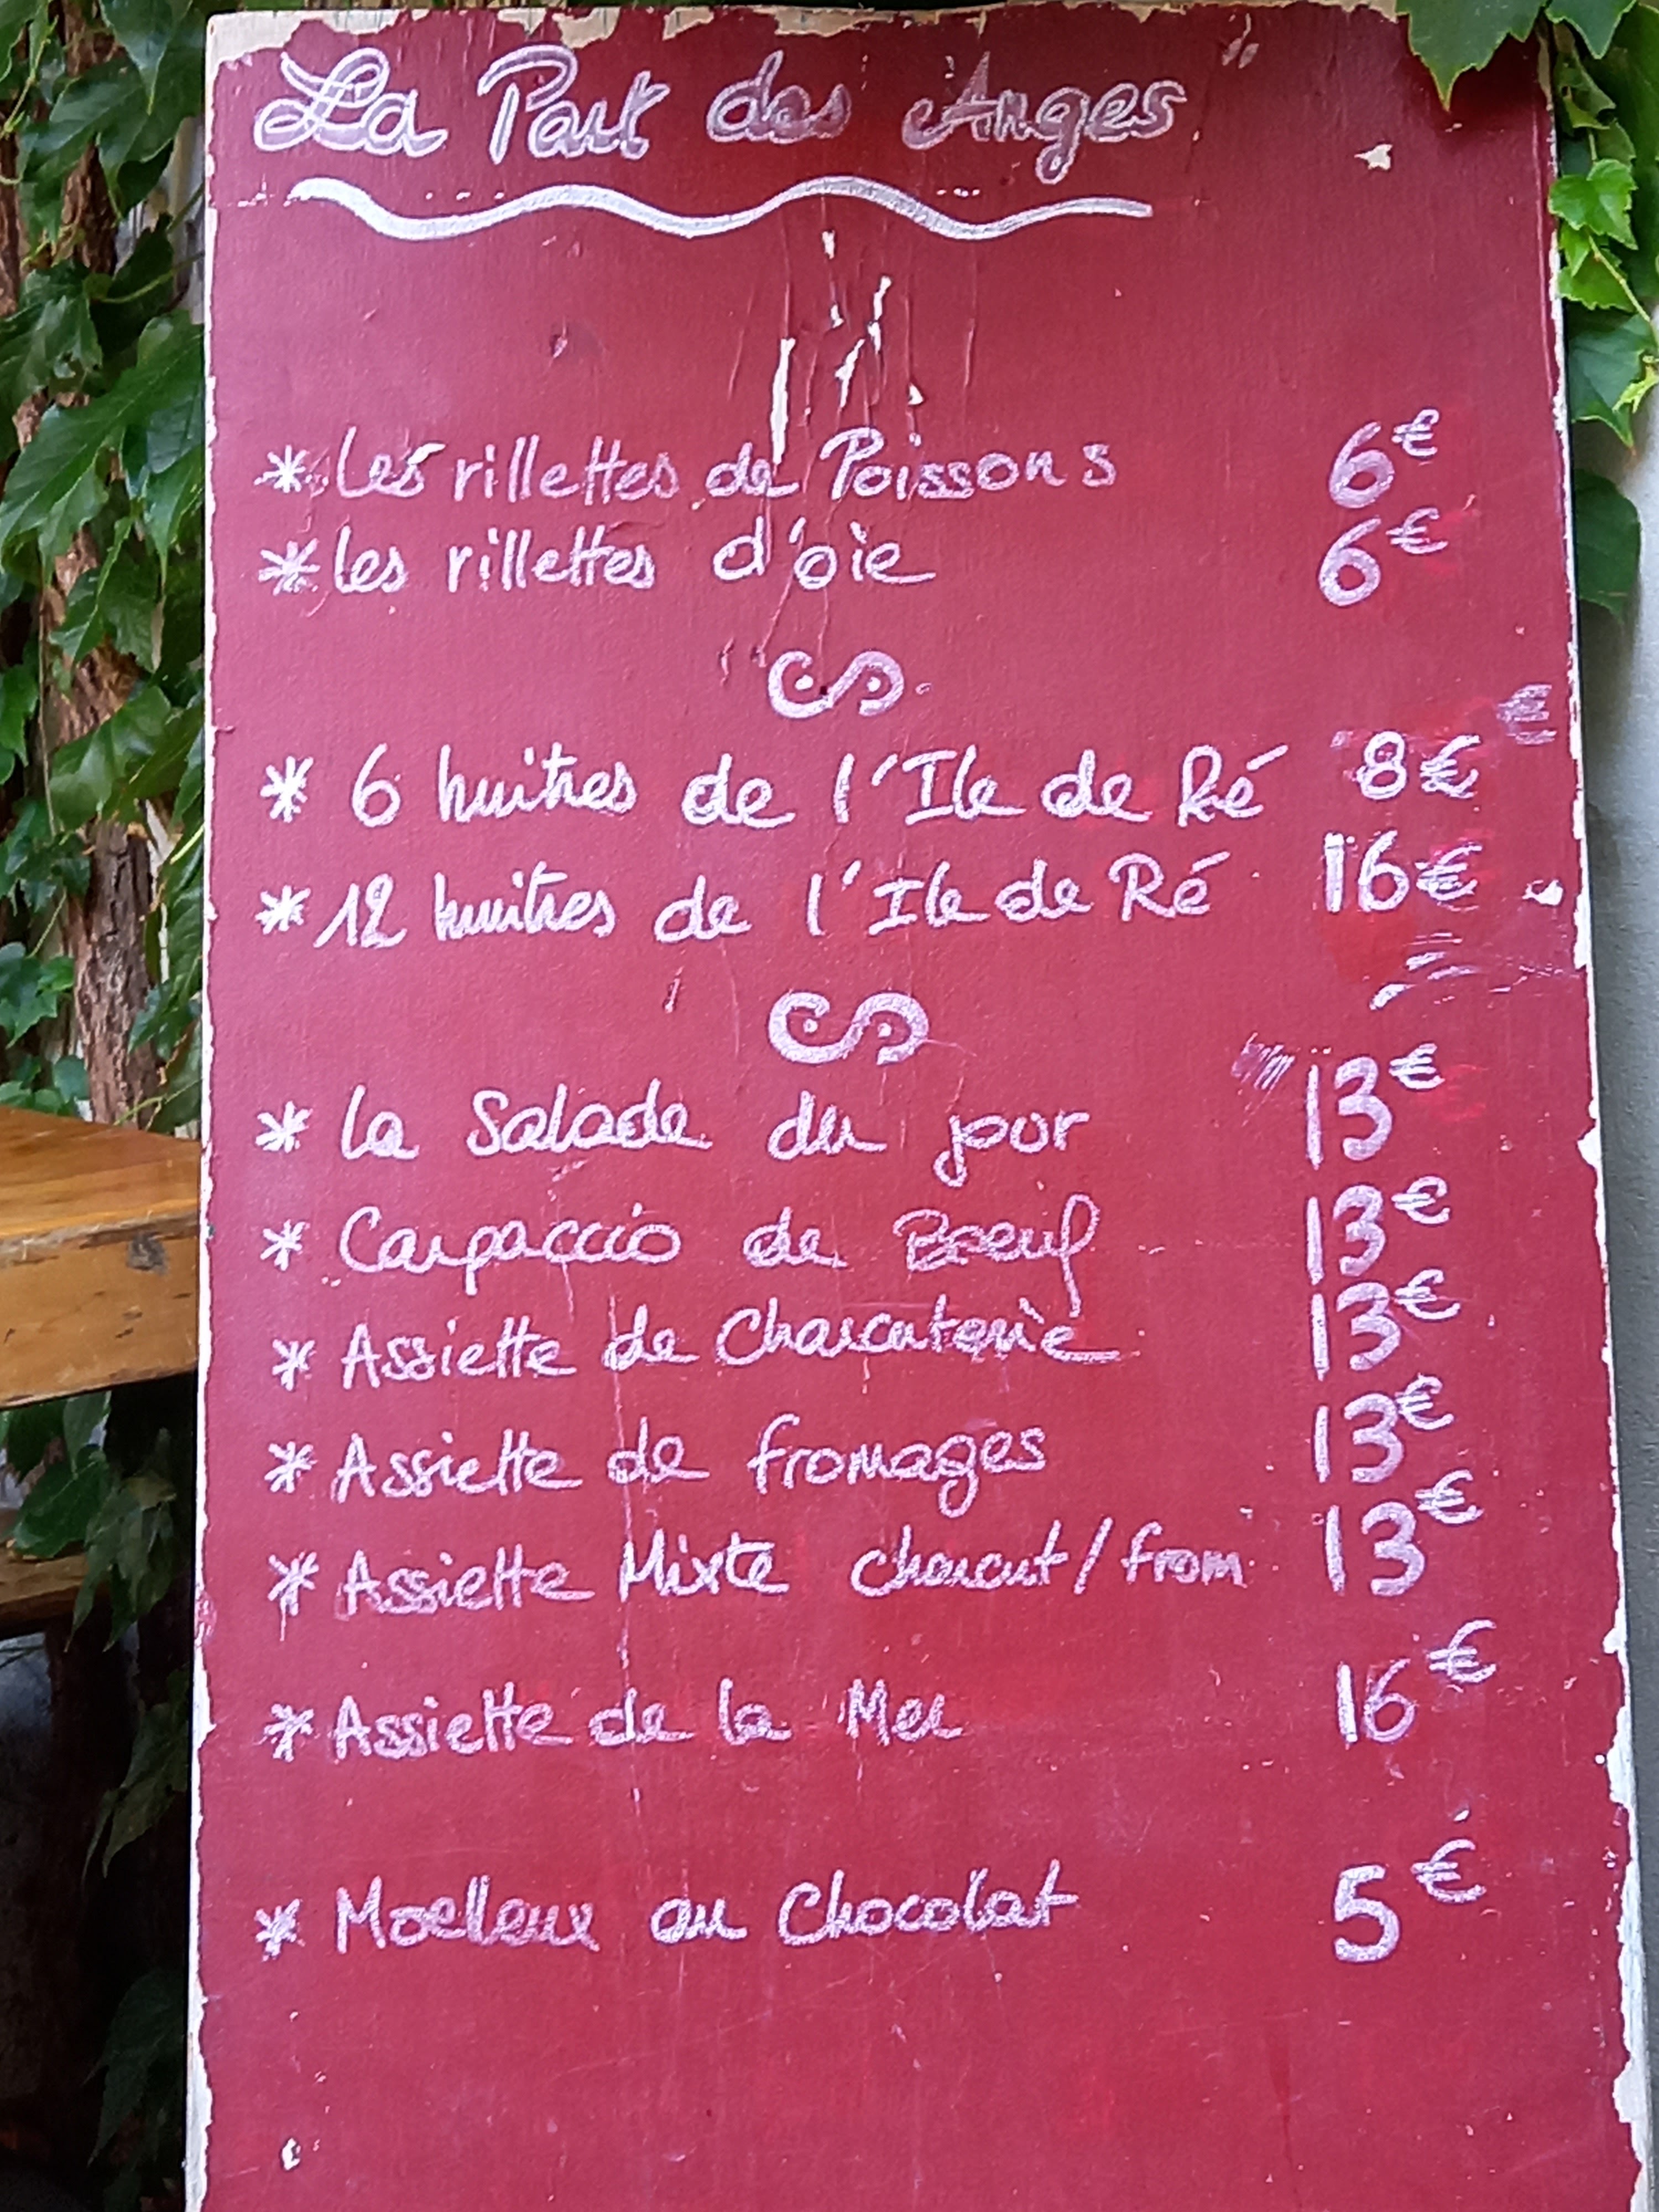 La Part des Anges
* Les rillettes de Poissons 6€
* les rillettes d'oie 6€
* 6 huitres de l'Ile de Ré 8€
* 12 huitres de l'Ile de Ré 16€
* la Salade du jour 13€
* Carpaccio de Boeuf 13€
* Assiette de Charcuterie 13€
* Assiette de fromages 13€
* Assiette Mixte charcut/from 13€
* Assiette de la Mer 16€
* Moelleux au Chocolat 5€